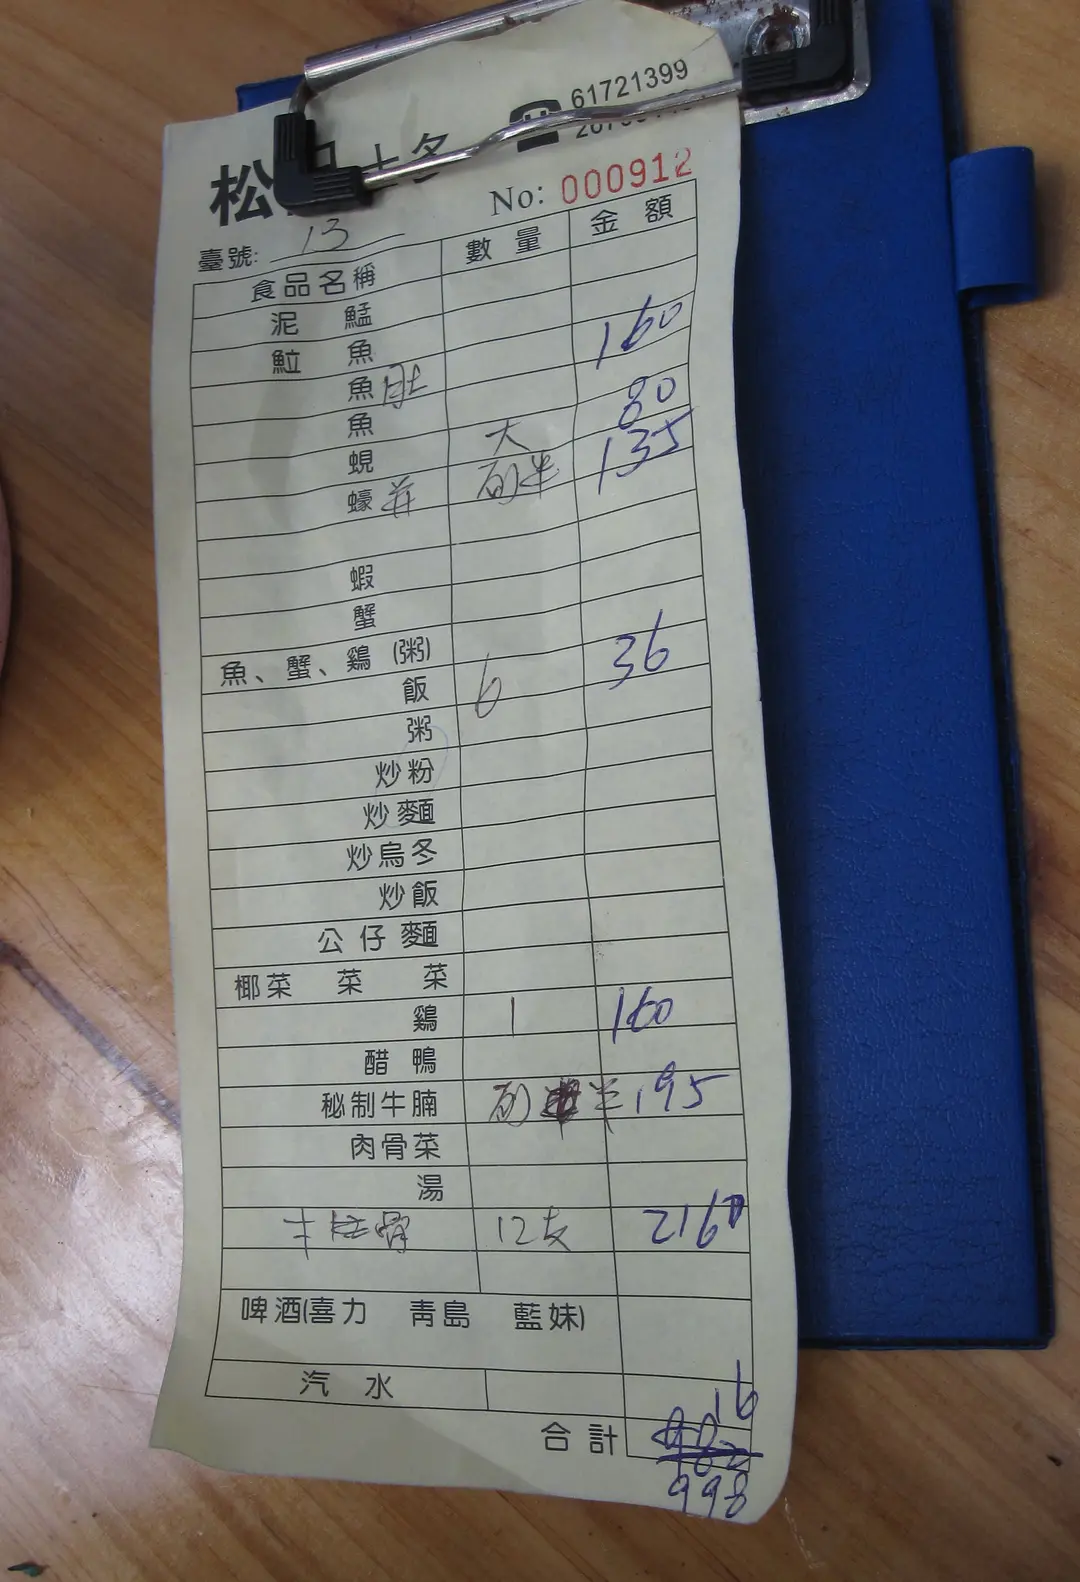 61721399
松 士多
No: 000912
臺號: 13
食品名稱 數量 金額
泥鯭
魚 160
魚肚
魚 80
蜆 大 135
蠔 并 半
蝦
蟹
魚、蟹、鷄 (粥)
飯 6 36
粥
炒粉
炒麵
炒烏冬
炒飯
公仔麵
椰菜 菜 菜
鷄 1 160
醋鴨
秘制牛腩 半 195
肉骨菜
湯
牛 骨 12支 216
啤酒(喜力 青島 藍妹)
汽水 16
合計
998